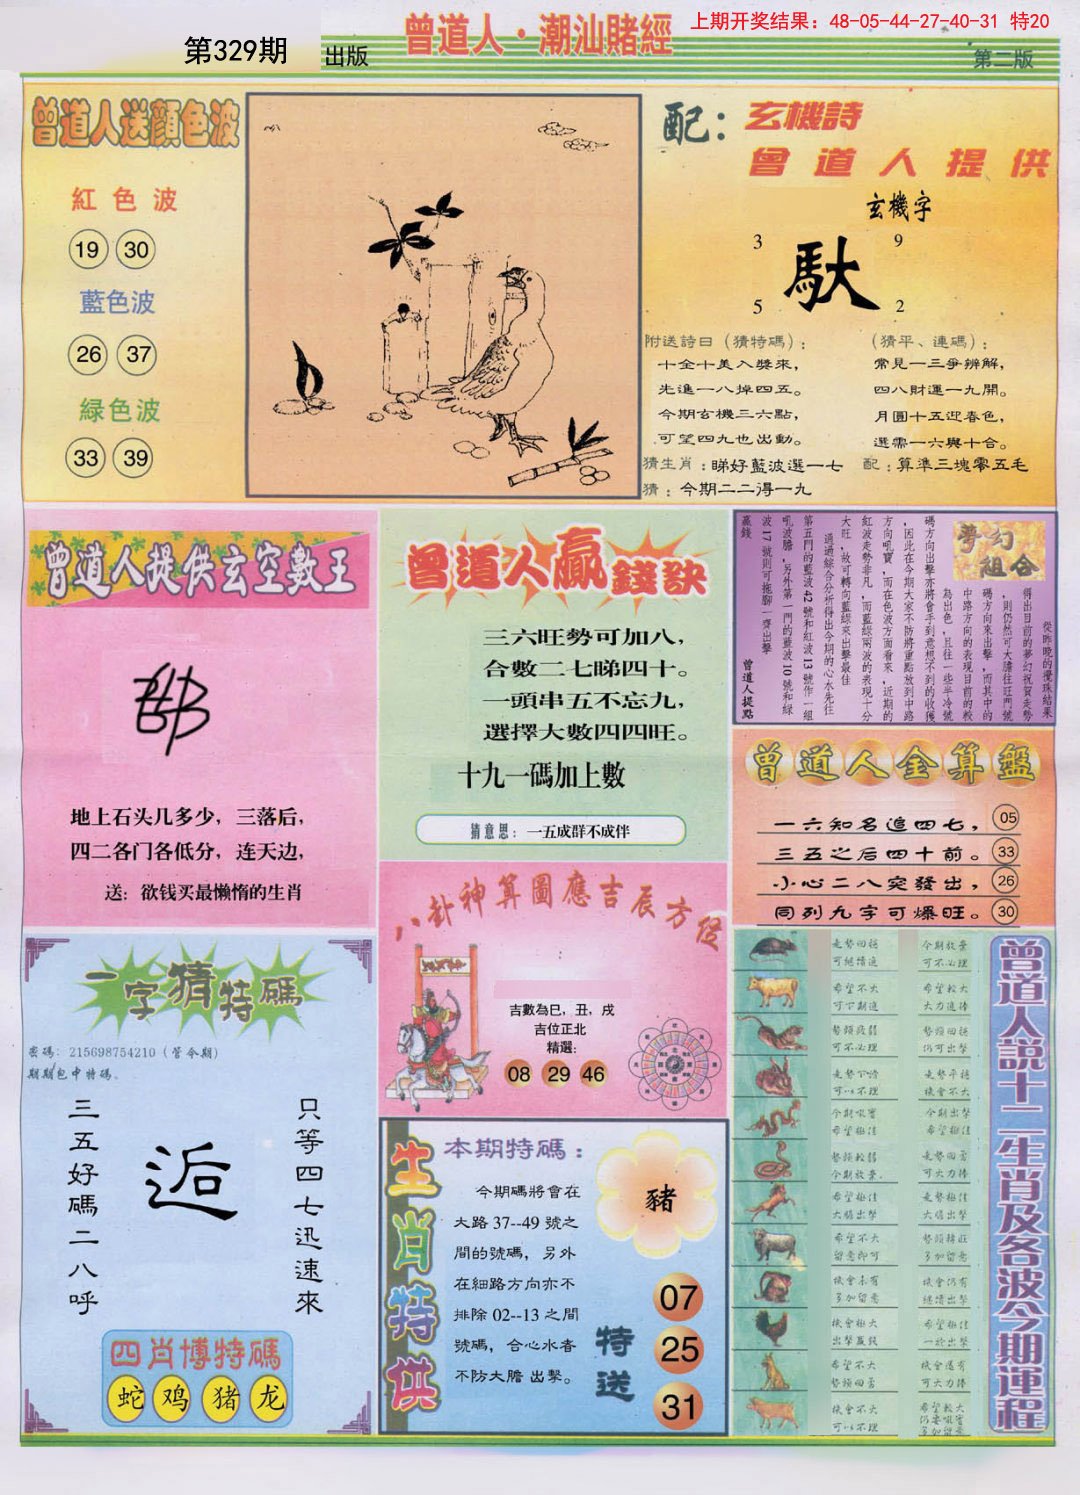 上期开奖结果：48-05-44-27-40-31 特20
第329期 出版
曾道人·潮汕賭經
第二版
曾道人送顔色波
紅色波
19 30
藍色波
26 37
緑色波
33 39
配：玄機詩
曾道人提供
玄機字
3 9
馱
5 2
附送詩曰（猜特碼）：
十全十美入獎來，
先進一八掉四五。
今期玄機三六點，
可望四九也出動。
猜生肖：睇好藍波選一七
猜：今期二二得一九
（猜平、連碼）：
常見一三爭辨解，
四八財運一九開。
月圓十五迎春色，
選需一六與十合。
配：算準三塊零五毛
曾道人提供玄空數王
地上石头几多少，三落后，
四二各门各低分，连天边，
送：欲钱买最懒惰的生肖
曾道人贏錢訣
三六旺勢可加八，
合數二七睇四十。
一頭串五不忘九，
選擇大數四四旺。
十九一碼加上數
猜意思：一五成群不成伴
夢幻組合
從昨晚的攪珠結果
得出目前的夢幻祝賀走勢
，則仍然可大膽往旺門號
碼方向來出擊，而其中的
中路方向的表現目前的較
為出色，且往一些半冷號
碼方向出擊亦將會手到意想不到的收獲
，因此在今期大家不防將重點放到中路
方向吼寶，而在色波方面看來，近期的
紅波走勢非凡，而藍綠兩波的表現十分
大旺，故可轉向藍綠來出擊最佳
通過綜合分析得出今期的心水先往
第五門的藍波42號和紅波13號作一組
吼波膽，另外第一門的藍波10號和綠
波17號則可拖腳一齊出擊
贏錢
曾道人提點
曾道人金算盤
一六知名追四七， 05
三五之后四十前。 33
小心二八突發出， 26
同列九字可爆旺。 30
八卦神算圖應吉辰方位
吉數為巳，丑，戌
吉位正北
精選：
08 29 46
一字猜特碼
密碼：215698754210（管今期）
期期包中特碼、
三五好碼二八呼
逅
只等四七迅速來
四肖博特碼
蛇 鸡 猪 龙
生肖特供
本期特碼：
今期碼將會在
大路37--49號之
間的號碼，另外
在細路方向亦不
排除02--13之間
號碼，合心水者
不防大膽出擊。
豬
特送
07
25
31
曾道人說十二生肖及各波今期運程
走勢回穩 今期放棄
可繼續追 可不必理
希望不大 希望較大
可下期追 大力追捧
勢頭疲弱 勢頭回穩
可不必理 仍可出擊
走勢下滑 走勢平穩
可以不理 機會不大
今期吸寶 今期出擊
希望極佳 希望極佳
勢頭較弱 走勢回勇
今期放棄、 可大力捧
希望極佳 走勢極佳
大膽出擊 大膽出擊
希望不大 勢頭轉旺
留意即可 多加留意
機會未有 機會仍有
多加留意 繼續出擊
機會極大 希望極佳
出擊贏錢 一於出擊
希望不大 機會還有
勢頭回勇 可大力捧
機會不大 希望較大
可以不理 仍要吸寶
多加留意